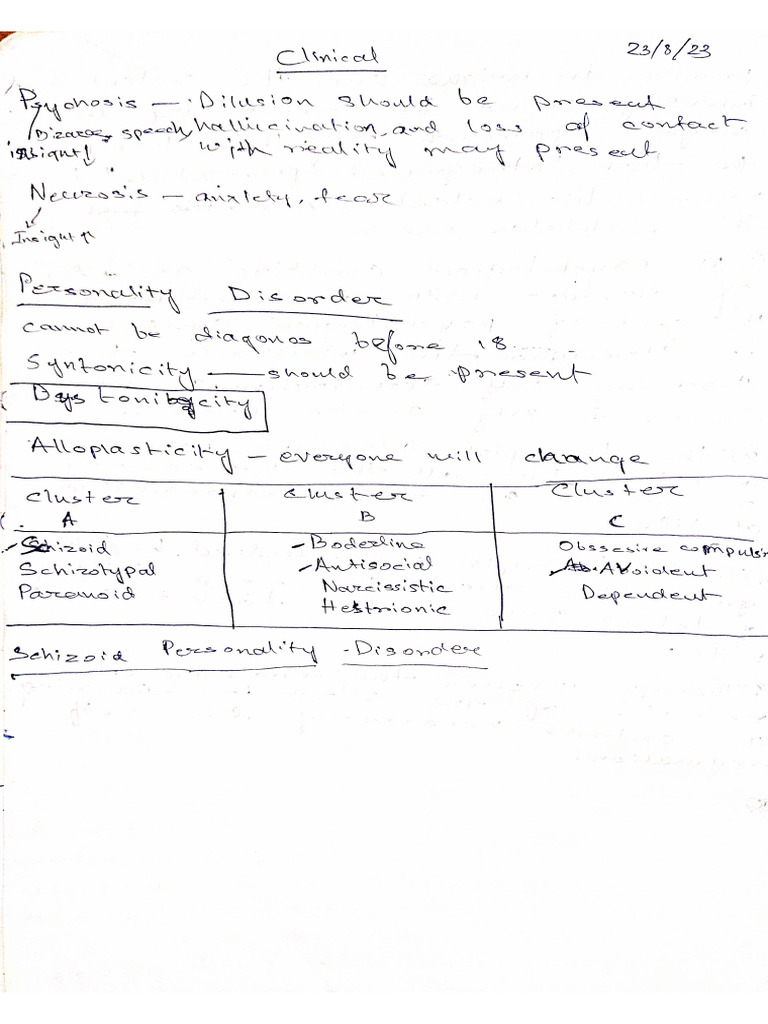 Clinical
23/8/23
Psychosis — Dilusion should be present
Bizarre speech, hallucination, and loss of contact
insight↓ with reality may present
Neurosis — anxiety, fear
Insight ↑
Personality Disorder
cannot be diagonos before 18
Syntonicity — should be present
Alloplasticity — everyone will change
Cluster A
Cluster B
Cluster C
- Schizoid
Schizotypal
Paranoid
- Boderline
- Antisocial
Narcissistic
Hestrionic
Obssesive compulsiv
Avoident
Dependent
Schizoid Personality Disorder